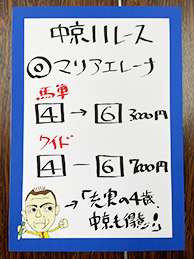 中京11レース
◎マリアエレーナ
馬単
4→6 3000円
ワイド
4－6 7000円
→「充実の4歳、
中京も得意!!」